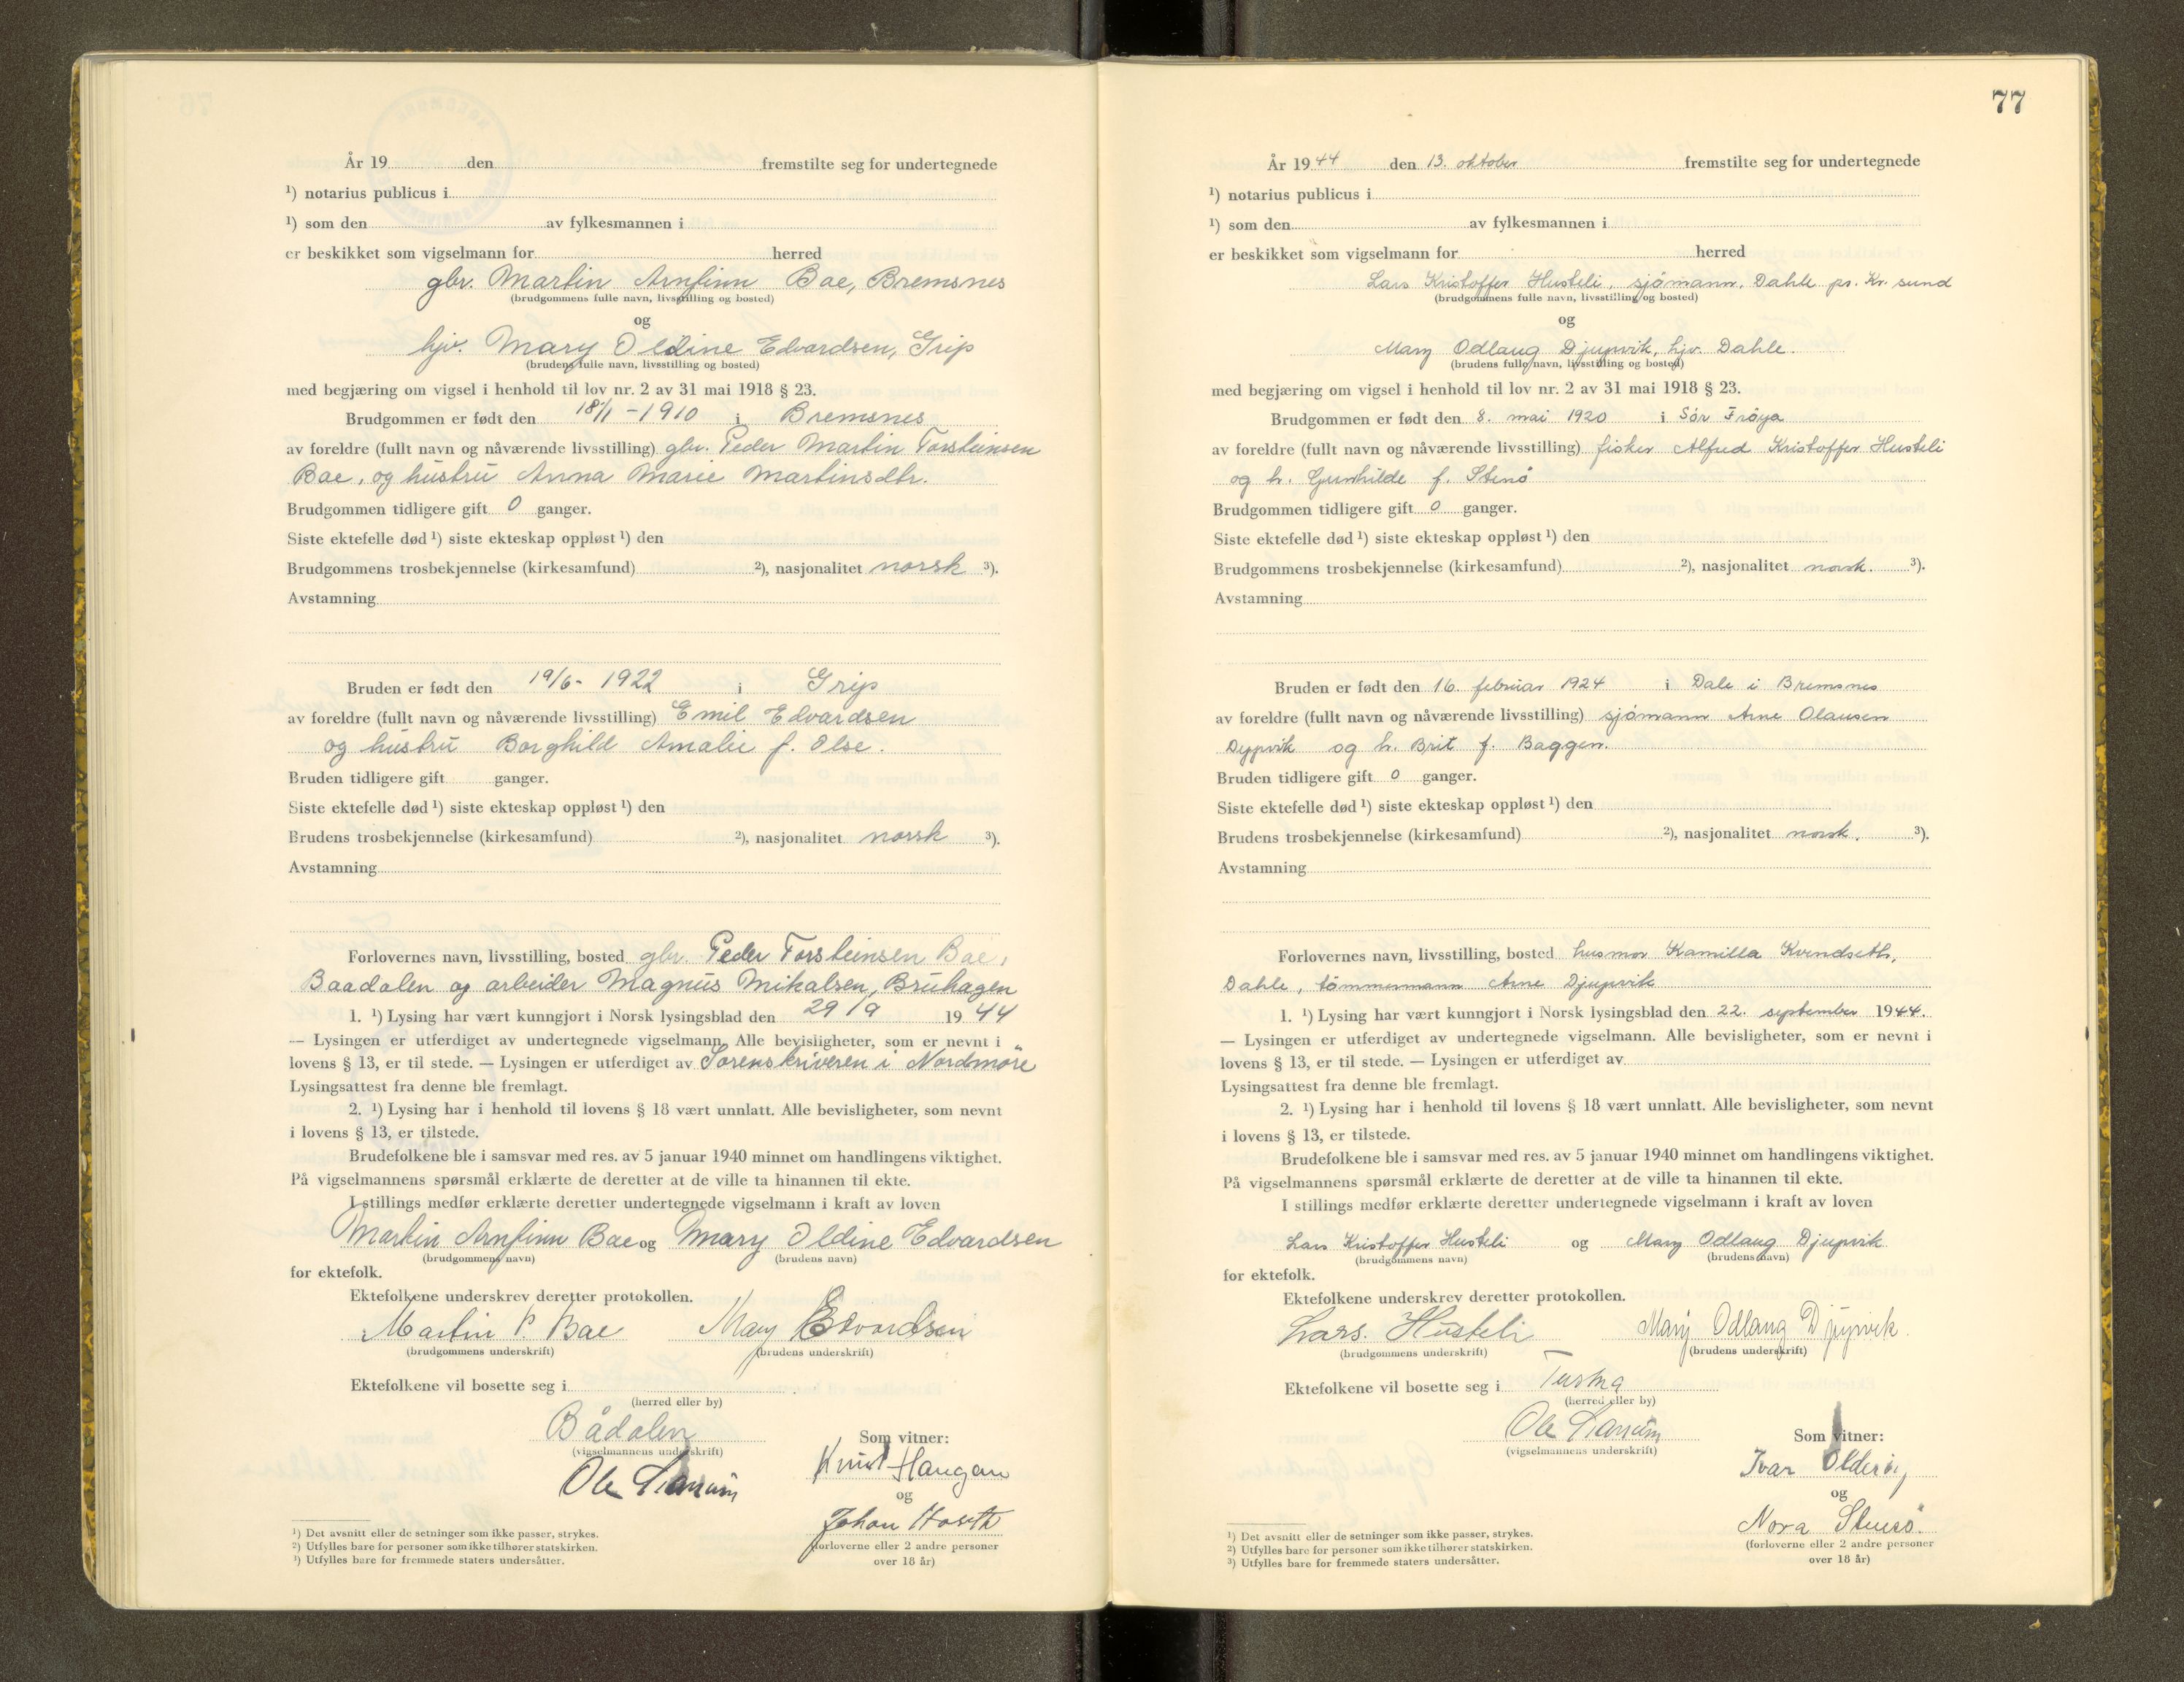 År 19 den fremstilte seg for undertegnede
¹) notarius publicus i
¹) som den av fylkesmannen i
er beskikket som vigselmann for herred
gbr. Martin Arnfinn Bae, Bremsnes
(brudgommens fulle navn, livsstilling og bosted)
og
hjv. Mary Oldine Edvardsen, Grip
(brudens fulle navn, livsstilling og bosted)
med begjæring om vigsel i henhold til lov nr. 2 av 31 mai 1918 § 23.
Brudgommen er født den 18/1 - 1910 i Bremsnes
av foreldre (fullt navn og nåværende livsstilling) gbr. Peder Martin Torsteinsen
Bae, og hustru Anna Marie Martinsdtr.
Brudgommen tidligere gift 0 ganger.
Siste ektefelle død ¹) siste ekteskap oppløst ¹) den
Brudgommens trosbekjennelse (kirkesamfund) ²), nasjonalitet norsk ³).
Avstamning
Bruden er født den 19/6 - 1922 i Grip
av foreldre (fullt navn og nåværende livsstilling) Emil Edvardsen
og hustru Borghild Amalie f. Olse.
Bruden tidligere gift 0 ganger.
Siste ektefelle død ¹) siste ekteskap oppløst ¹) den
Brudens trosbekjennelse (kirkesamfund) ²), nasjonalitet norsk ³).
Avstamning
Forlovernes navn, livsstilling, bosted gbr. Peder Torsteinsen Bae,
Baadalen og arbeider Magnus Mikalsen, Bruhagen
1. ¹) Lysing har vært kunngjort i Norsk lysingsblad den 29/9 1944
— Lysingen er utferdiget av undertegnede vigselmann. Alle bevisligheter, som er nevnt i
lovens § 13, er til stede. — Lysingen er utferdiget av Sorenskriveren i Nordmöre
Lysingsattest fra denne ble fremlagt.
2. ¹) Lysing har i henhold til lovens § 18 vært unnlatt. Alle bevisligheter, som nevnt
i lovens § 13, er tilstede.
Brudefolkene ble i samsvar med res. av 5 januar 1940 minnet om handlingens viktighet.
På vigselmannens spørsmål erklærte de deretter at de ville ta hinannen til ekte.
I stillings medfør erklærte deretter undertegnede vigselmann i kraft av loven
Martin Arnfinn Bae og Mary Oldine Edvardsen
(brudgommens navn) (brudens navn)
for ektefolk.
Ektefolkene underskrev deretter protokollen.
Martin P. Bae Mary Edvardsen
(brudgommens underskrift) (brudens underskrift)
Ektefolkene vil bosette seg i
(herred eller by)
Bådalen
(vigselmannens underskrift)
Som vitner:
Ole
Knut Haugan
og
Johan
(forloverne eller 2 andre personer
over 18 år)
¹) Det avsnitt eller de setninger som ikke passer, strykes.
²) Utfylles bare for personer som ikke tilhører statskirken.
³) Utfylles bare for fremmede staters undersåtter.
77
År 1944 den 13. oktober fremstilte seg for undertegnede
¹) notarius publicus i
¹) som den av fylkesmannen i
er beskikket som vigselmann for herred
Lars Kristoffer Husteli, sjömann, Dahle pr. Kr. sund
(brudgommens fulle navn, livsstilling og bosted)
og
Mary Odlaug Djupvik, hjv. Dahle.
(brudens fulle navn, livsstilling og bosted)
med begjæring om vigsel i henhold til lov nr. 2 av 31 mai 1918 § 23.
Brudgommen er født den 8. mai 1920 i Sör Fröya
av foreldre (fullt navn og nåværende livsstilling) fisker Alfred Kristoffer Husteli
og h. Gunhilde f. Stenö
Brudgommen tidligere gift 0 ganger.
Siste ektefelle død ¹) siste ekteskap oppløst ¹) den
Brudgommens trosbekjennelse (kirkesamfund) ²), nasjonalitet norsk. ³).
Avstamning
Bruden er født den 16. februar 1924 i Dale i Bremsnes
av foreldre (fullt navn og nåværende livsstilling) sjömann Arne Olausen
Dypvik og h. Brit f. Baggen.
Bruden tidligere gift 0 ganger.
Siste ektefelle død ¹) siste ekteskap oppløst ¹) den
Brudens trosbekjennelse (kirkesamfund) ²), nasjonalitet norsk. ³).
Avstamning
Forlovernes navn, livsstilling, bosted husmor Kamilla Kvendseth,
Dahle, tömmermann Arne Djupvik
1. ¹) Lysing har vært kunngjort i Norsk lysingsblad den 22. september 1944.
— Lysingen er utferdiget av undertegnede vigselmann. Alle bevisligheter, som er nevnt i
lovens § 13, er til stede. — Lysingen er utferdiget av
Lysingsattest fra denne ble fremlagt.
2. ¹) Lysing har i henhold til lovens § 18 vært unnlatt. Alle bevisligheter, som nevnt
i lovens § 13, er tilstede.
Brudefolkene ble i samsvar med res. av 5 januar 1940 minnet om handlingens viktighet.
På vigselmannens spørsmål erklærte de deretter at de ville ta hinannen til ekte.
I stillings medfør erklærte deretter undertegnede vigselmann i kraft av loven
Lars Kristoffer Husteli og Mary Odlaug Djupvik
(brudgommens navn) (brudens navn)
for ektefolk.
Ektefolkene underskrev deretter protokollen.
Lars. Husteli Mary Odlaug Djupvik.
(brudgommens underskrift) (brudens underskrift)
Ektefolkene vil bosette seg i Tustna
(herred eller by)
Ole
(vigselmannens underskrift)
Som vitner:
Ivar
og
Nora
(forloverne eller 2 andre personer
over 18 år)
¹) Det avsnitt eller de setninger som ikke passer, strykes.
²) Utfylles bare for personer som ikke tilhører statskirken.
³) Utfylles bare for fremmede staters undersåtter.